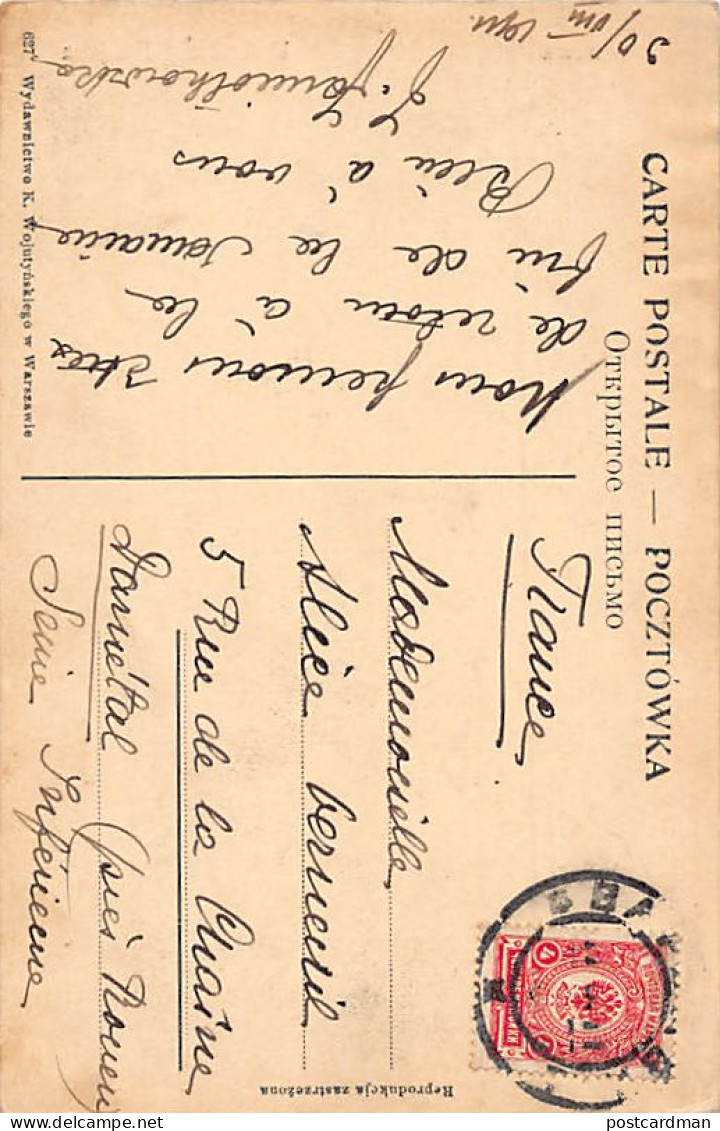 CARTE POSTALE — POCZTÓWKA
Открытое письмо
30/VIII 1911.
Nous pensons être
de retour à la
fin de la semaine
Bien à vous
627 Wydawnictwo K. Wojutyńskiego w Warszawie
France
Mademoiselle
Alice Verneuil
5 Rue de la Chaîne
Darnétal près Rouen
Seine Inférieure
Reprodukcja zastrzeżona
postcardman.com